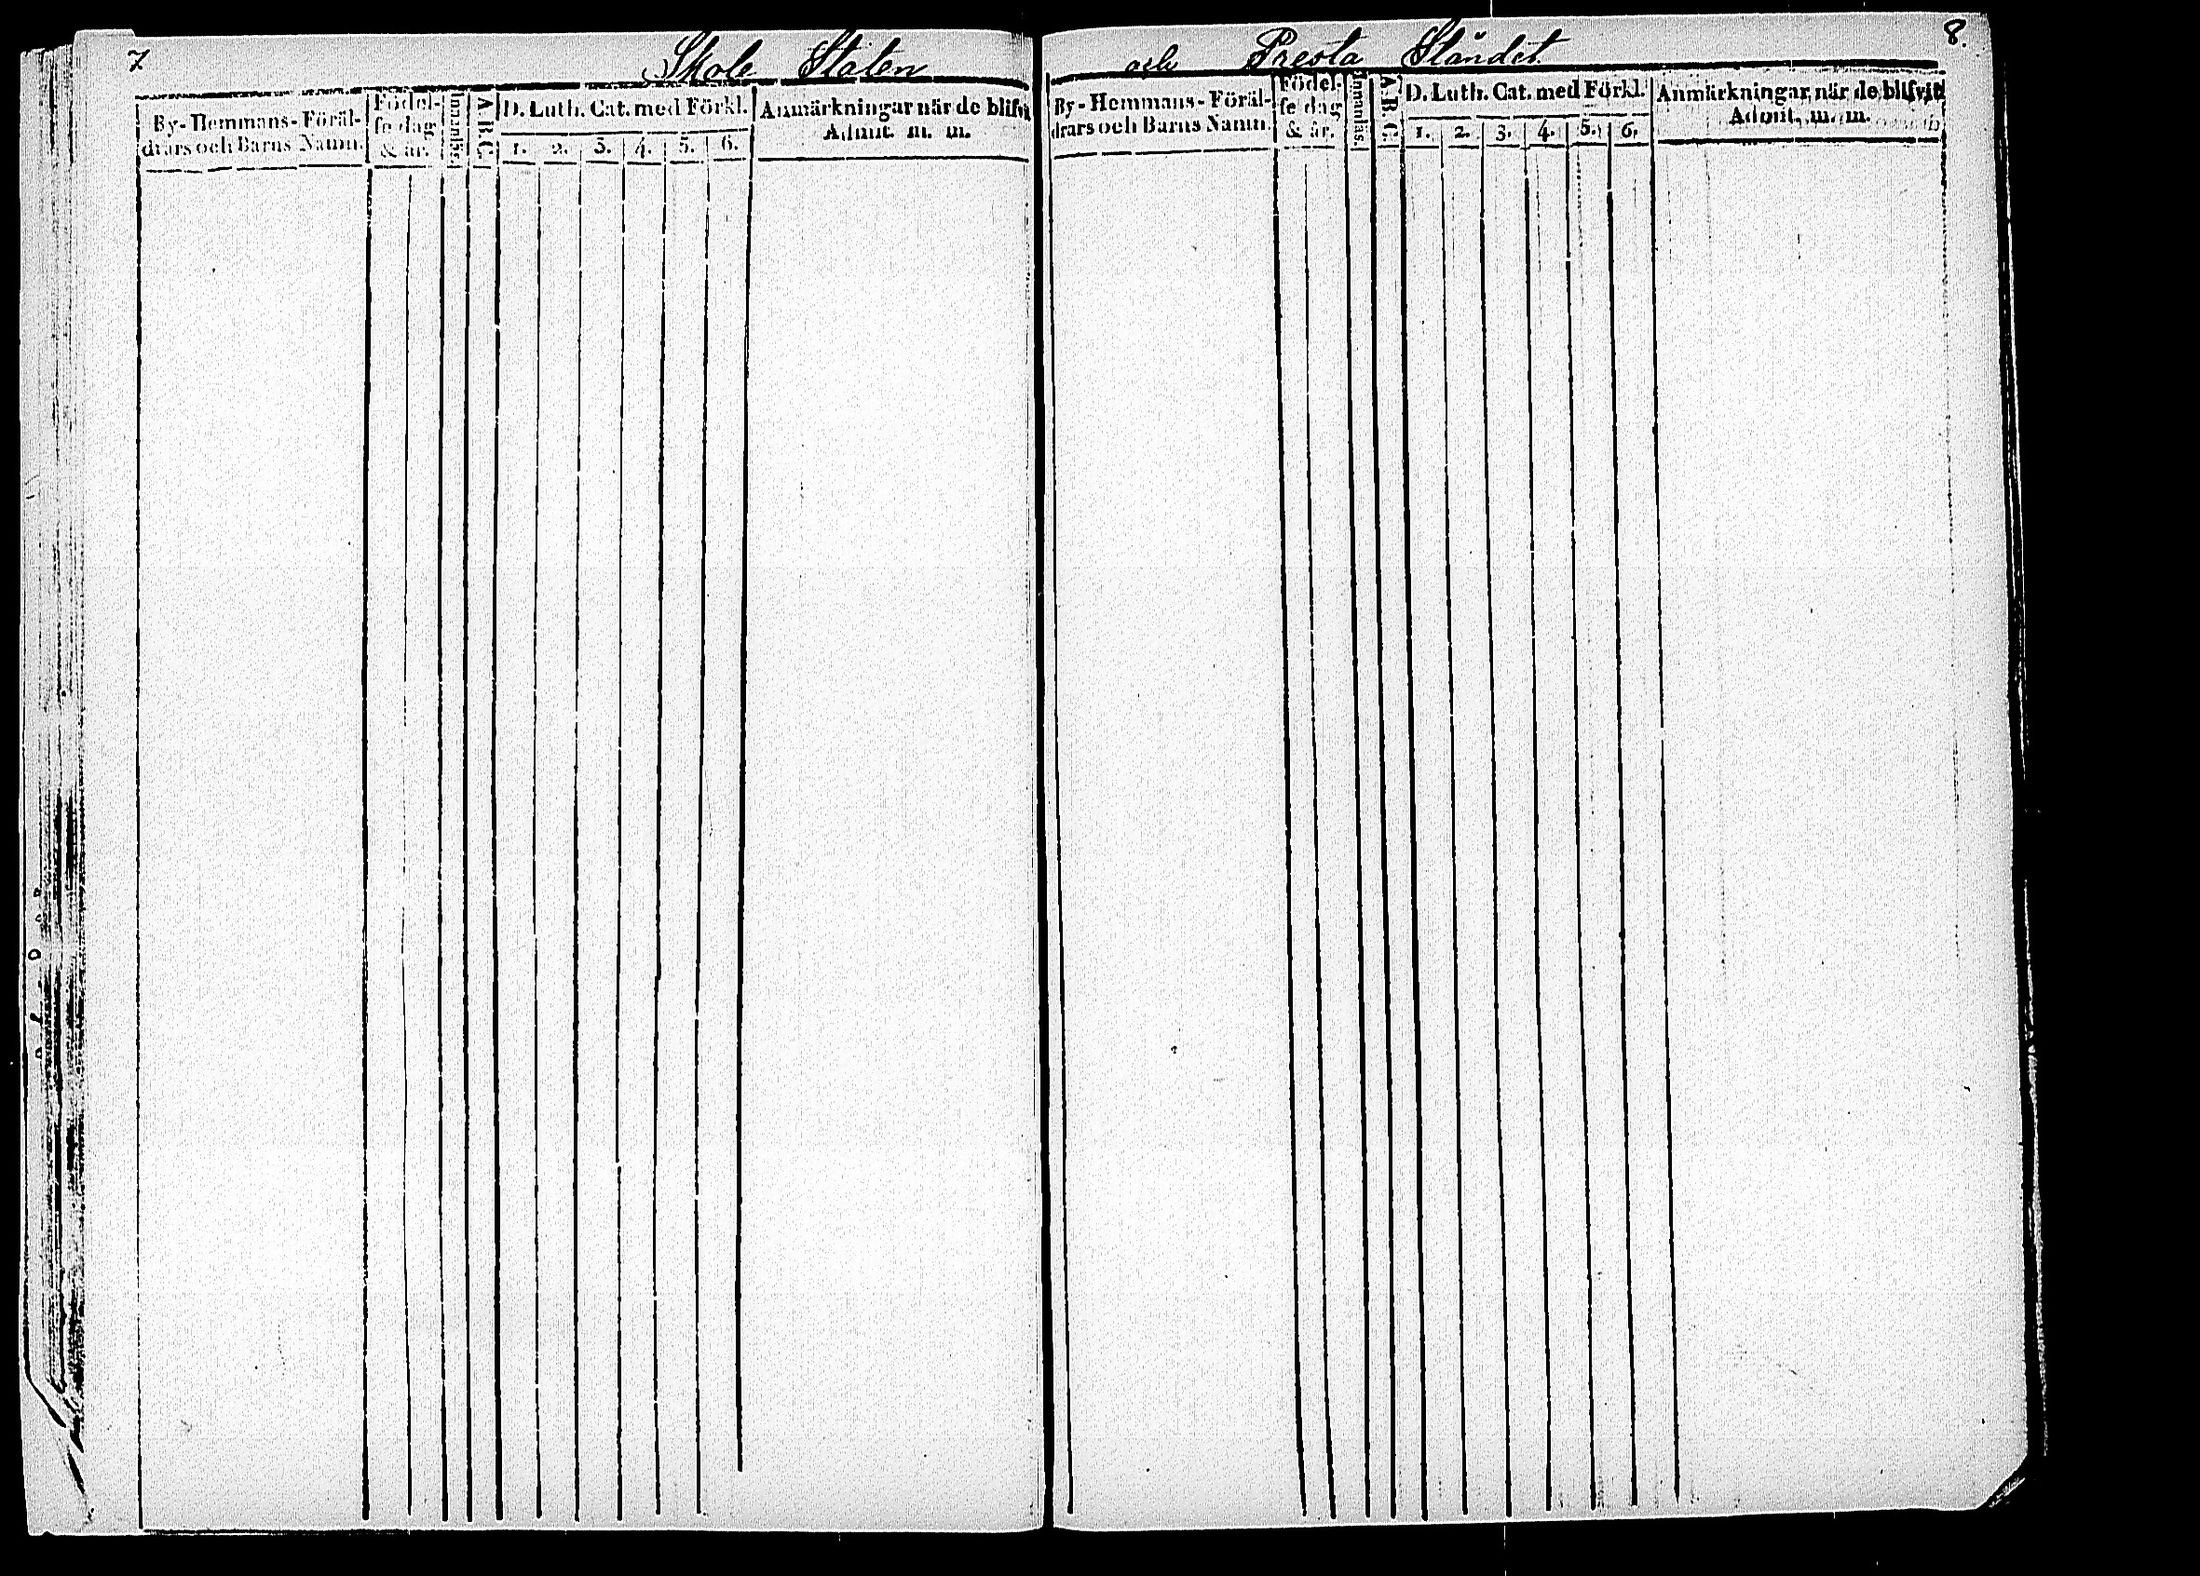 7.
Skole Staten
By-Hemmans-Föräl-
drars och Barns Namn.
Födel-
se dag
& år.
Innanläs.
A.B.C.
D. Luth. Cat. med Förkl.
1. 2. 3. 4. 5. 6.
Anmärkningar när de blifvit
Admit. m. m.
8.
och Presta Ståndet
By-Hemmans-Föräl-
drars och Barns Namn.
Födel-
se dag
& år.
Innanläs.
A.B.C.
D. Luth. Cat. med Förkl.
1. 2. 3. 4. 5. 6.
Anmärkningar när de blifvit
Admit. m. m.